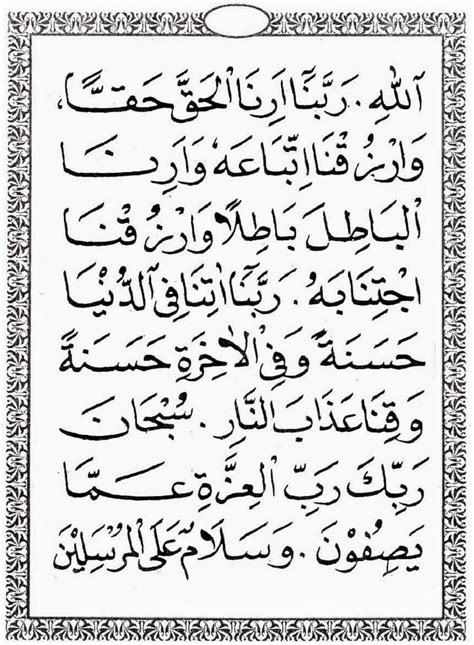 اَللّٰهِ. رَبَّنَآ اَرِنَا الْحَقَّ حَقًّا،
وَارْزُقْنَا اتِّبَاعَهٗ وَاَرِنَا
الْبَاطِلَ بَاطِلًا وَارْزُقْنَا
اجْتِنَابَهٗ. رَبَّنَآ اٰتِنَا فِى الدُّنْيَا
حَسَنَةً وَفِى الْاٰخِرَةِ حَسَنَةً
وَقِنَا عَذَابَ النَّارِ. سُبْحَانَ
رَبِّكَ رَبِّ الْعِزَّةِ عَمَّا
يَصِفُوْنَ. وَسَلَامٌ عَلَى الْمُرْسَلِيْنَ